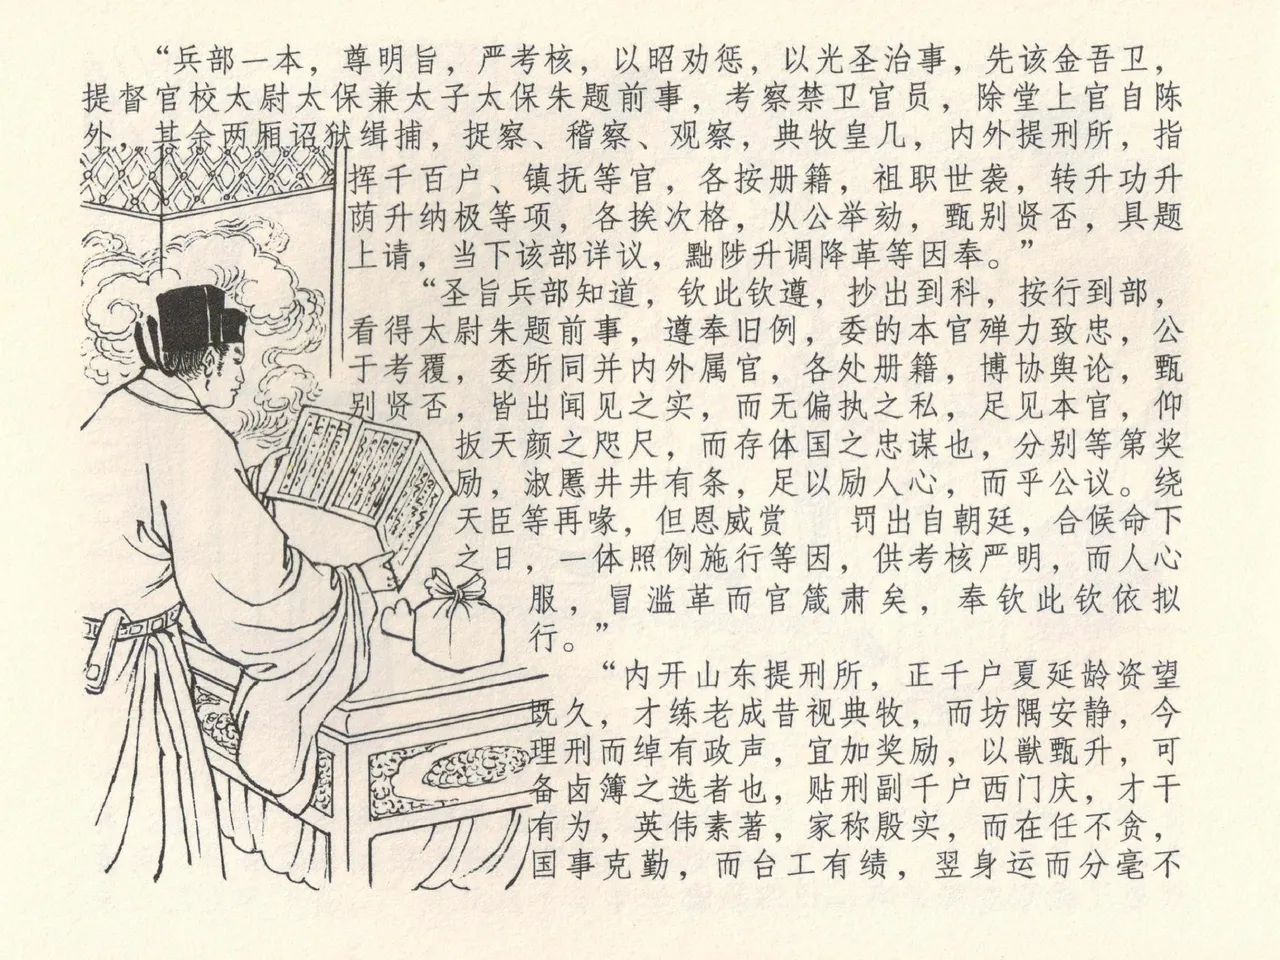 “兵部一本，尊明旨，严考核，以昭劝惩，以光圣治事，先该金吾卫，
提督官校太尉太保兼太子太保朱题前事，考察禁卫官员，除堂上官自陈
外，其余两厢诏狱缉捕，捉察、稽察、观察，典牧皇几，内外提刑所，指
挥千百户、镇抚等官，各按册籍，祖职世袭，转升功升
荫升纳极等项，各挨次格，从公举劾，甄别贤否，具题
上请，当下该部详议，黜陟升调降革等因奉。”
“圣旨兵部知道，钦此钦遵，抄出到科，按行到部，
看得太尉朱题前事，遵奉旧例，委的本官殚力致忠，公
于考覆，委所同并内外属官，各处册籍，博协舆论，甄
别贤否，皆出闻见之实，而无偏执之私，足见本官，仰
扳天颜之咫尺，而存体国之忠谋也，分别等第奖
励，淑慝井井有条，足以励人心，而乎公议。绕
天臣等再喙，但恩威赏　　罚出自朝廷，合候命下
之日，一体照例施行等因，供考核严明，而人心
服，冒滥革而官箴肃矣，奉钦此钦依拟
行。”
“内开山东提刑所，正千户夏延龄资望
既久，才练老成昔视典牧，而坊隅安静，今
理刑而绰有政声，宜加奖励，以獸甄升，可
备卤簿之选者也，贴刑副千户西门庆，才干
有为，英伟素著，家称殷实，而在任不贪，
国事克勤，而台工有绩，翌身运而分毫不